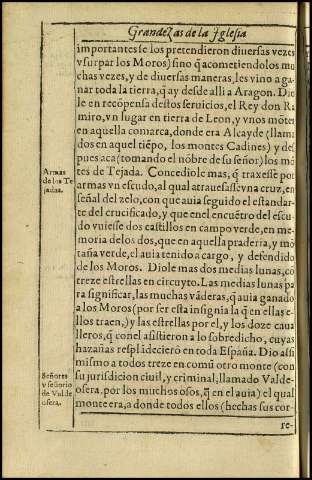 Grandezas de la Yglesia
importantes se los pretendieron diuersas vezes
vsurpar los Moros) sino q̃ acometiendolos mu
chas vezes, y de diuersas maneras, les vino a ga-
nar toda la tierra, q̃ ay desde alli a Aragon. Dio
le en recõpensa destos seruicios, el Rey don Ra
miro, vn lugar en tierra de Leon, y vnos mõtes
en aquella comarca, donde era Alcayde (llama
dos en aquel tiẽpo, los montes Cadines) y des
pues aca (tomando el nõbre de su señor) los mõ
tes de Tejada. Concediole mas, q̃ traxesse por
armas vn escudo, al qual atrauessasse vna cruz, en
señal del zelo, con que auia seguido el estandar-
te del crucificado, y que en el encuẽtro del escu
do vuiesse dos castillos en campo verde, en me-
moria de los dos, que en aquella praderia, y mõ
taña verde, el auia tenido a cargo, y defendido
de los Moros. Diole mas dos medias lunas, cõ
treze estrellas en circuyto. Las medias lunas pa
ra significar, las muchas vãderas, q̃ auia ganado
a los Moros (por ser esta insignia la q̃ en ellas e-
llos traen,) y las estrellas por el, y los doze caua
lleros, q̃ con el assistieron a lo sobredicho, cuyas
hazañas resplãdeciero en toda España. Dio assi
mismo a todos treze en comũ otro monte (con
su jurisdicion ciuil, y criminal, llamado Valde-
osera, por los muchos osos, q̃ en el auia) el qual
monte era, a donde todos ellos (hechas sus cor-
re-
Armas
de los Te
jadas.
Señores
y señorio
de Valde
osera.